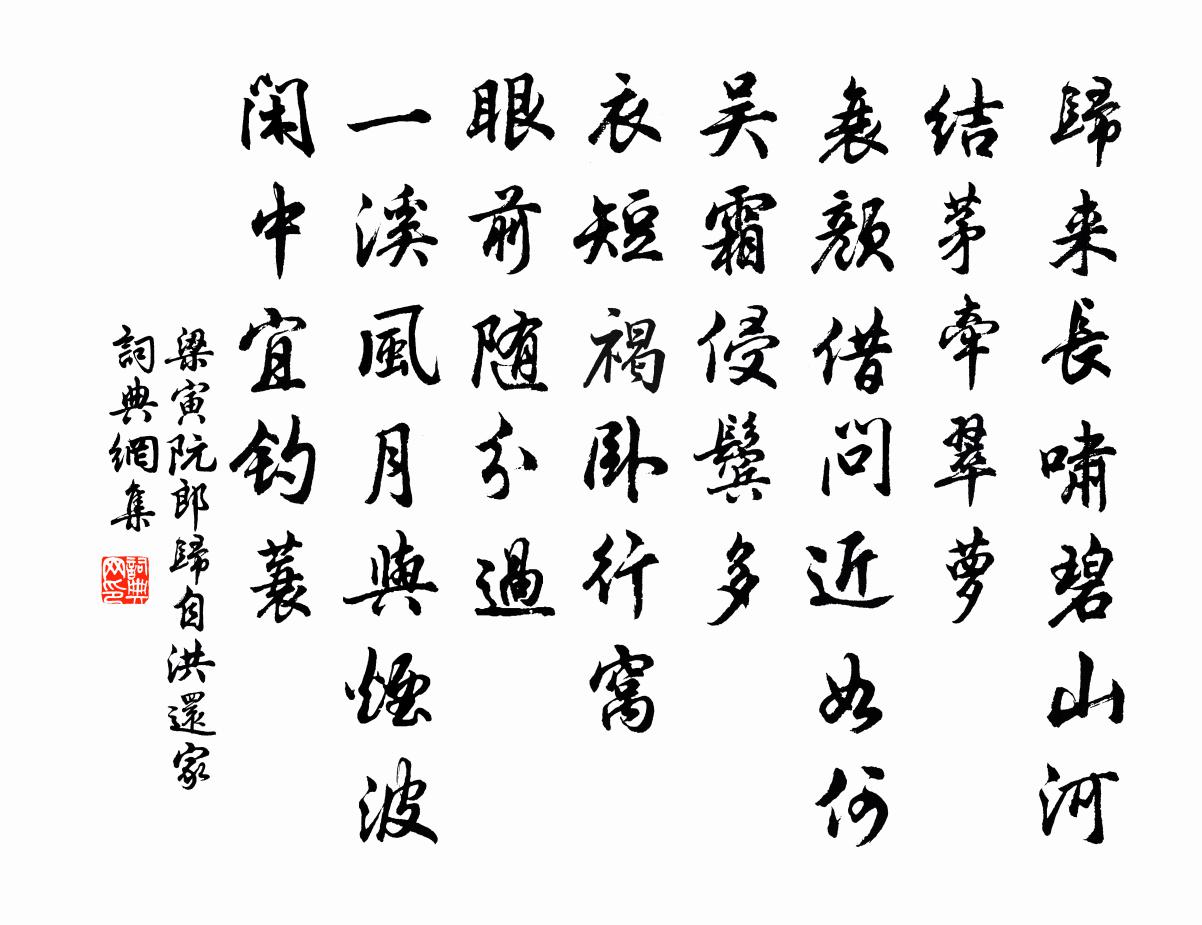 歸来長嘯碧山河
结茅牽翠萝
衰顔借問近如何
吴霜侵鬓多
衣短褐卧行窩
眼前随分過
一溪風月與煙波
閑中宜钓蓑
梁寅阮郎歸自洪還家
詞典網集
詞典網印